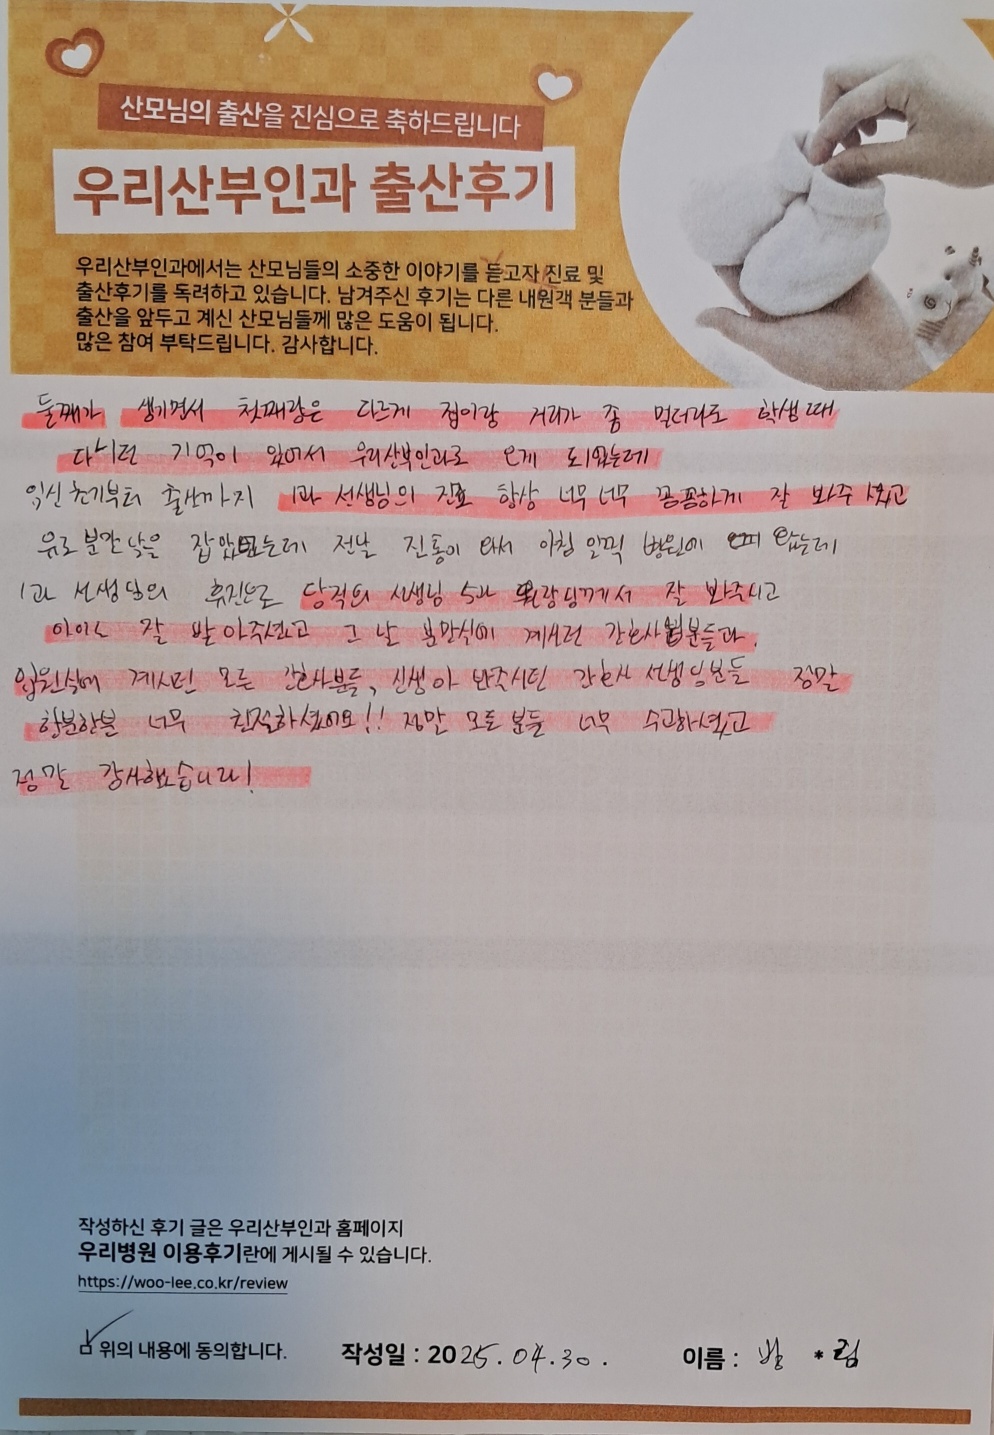 산모님의 출산을 진심으로 축하드립니다
우리산부인과 출산후기
우리산부인과에서는 산모님들의 소중한 이야기를 듣고자 진료 및
출산후기를 독려하고 있습니다. 남겨주신 후기는 다른 내원객 분들과
출산을 앞두고 계신 산모님들께 많은 도움이 됩니다.
많은 참여 부탁드립니다. 감사합니다.
둘째가 생기면서 첫째랑은 다르게 집이랑 거리가 좀 멀더라도 학생때
다니던 기억이 있어서 우리산부인과로 오게 되었는데
임신초기부터 출산까지 1과 선생님의 진료 항상 너무너무 꼼꼼하게 잘 봐주셨고
유도분만 날을 잡았는데 전날 진통이 와서 아침 일찍 병원에 왔는데
1과 선생님의 휴진으로 당직의 선생님 5과 원장님께서 잘 봐주시고
아이도 잘 받아주셨고 그 날 분만실에 계시던 간호사분들과,
입원실에 계시던 모든 간호사분들, 신생아 봐주시던 간호사 선생님분들 정말
한분한분 너무 친절하셨어요!! 정말 모든분들 너무 수고하셨고
정말 감사했습니다!
작성하신 후기 글은 우리산부인과 홈페이지
우리병원 이용후기란에 게시될 수 있습니다.
https://woo-lee.co.kr/review
위의 내용에 동의합니다. 작성일 : 2025.04.30. 이름 : * 림